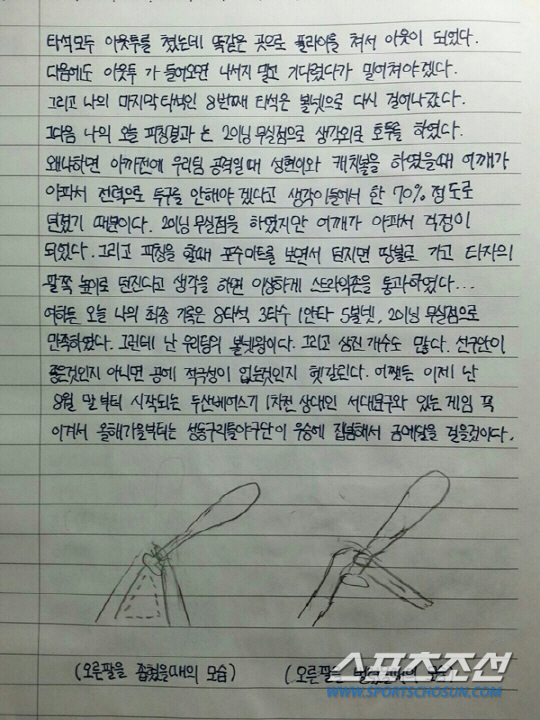 타석모두 아웃투를 쳤는데 똑같은 곳으로 플라이를 쳐서 아웃이 되었다.
다음에도 아웃투 가 들어오면 나서지 말고 기다렸다가 밀어쳐야겠다.
그리고 나의 마지막타석인 8번째 타석은 볼넷으로 다시 걸어나갔다.
그다음 나의 오늘 피칭결과 는 2이닝 무실점으로 생각외로 호투를 하였다.
왜냐하면 아까전에 우리팀 공격일때 성현이와 캐치볼을 하였을때 어깨가
아파서 전력으로 투구를 안해야 겠다고 생각이들어서 한 70% 정도로
던졌기 때문이다. 2이닝 무실점을 하였지만 어깨가 아파서 걱정이
되었다. 그리고 피칭을 할때 포수미트를 보면서 던지면 땅볼로 가고 타자의
팔쪽 높이로 던진다고 생각을 하면 이상하게 스트라익존을 통과하였다...
여하튼 오늘 나의 최종 기록은 8타석 3타수 1안타 5볼넷, 2이닝 무실점으로
만족하였다. 그런데 난 우리팀의 볼넷왕이다. 그리고 삼진 개수도 많다. 선구안이
좋은것인지 아니면 공에 적극성이 없는것인지 헷갈린다. 어쨌든 이제 난
8월 말부터 시작되는 두산베어스기 1차전 상대인 서대문구와 있는게임 꼭
이겨서 올해가을부터는 성동구리틀야구단이 우승에 집념해서 금메달을 걸을것이다.
(오른팔을 좁혔을때의 모습) (오른팔을
스포츠조선
WWW.SPORTSCHOSUN.COM